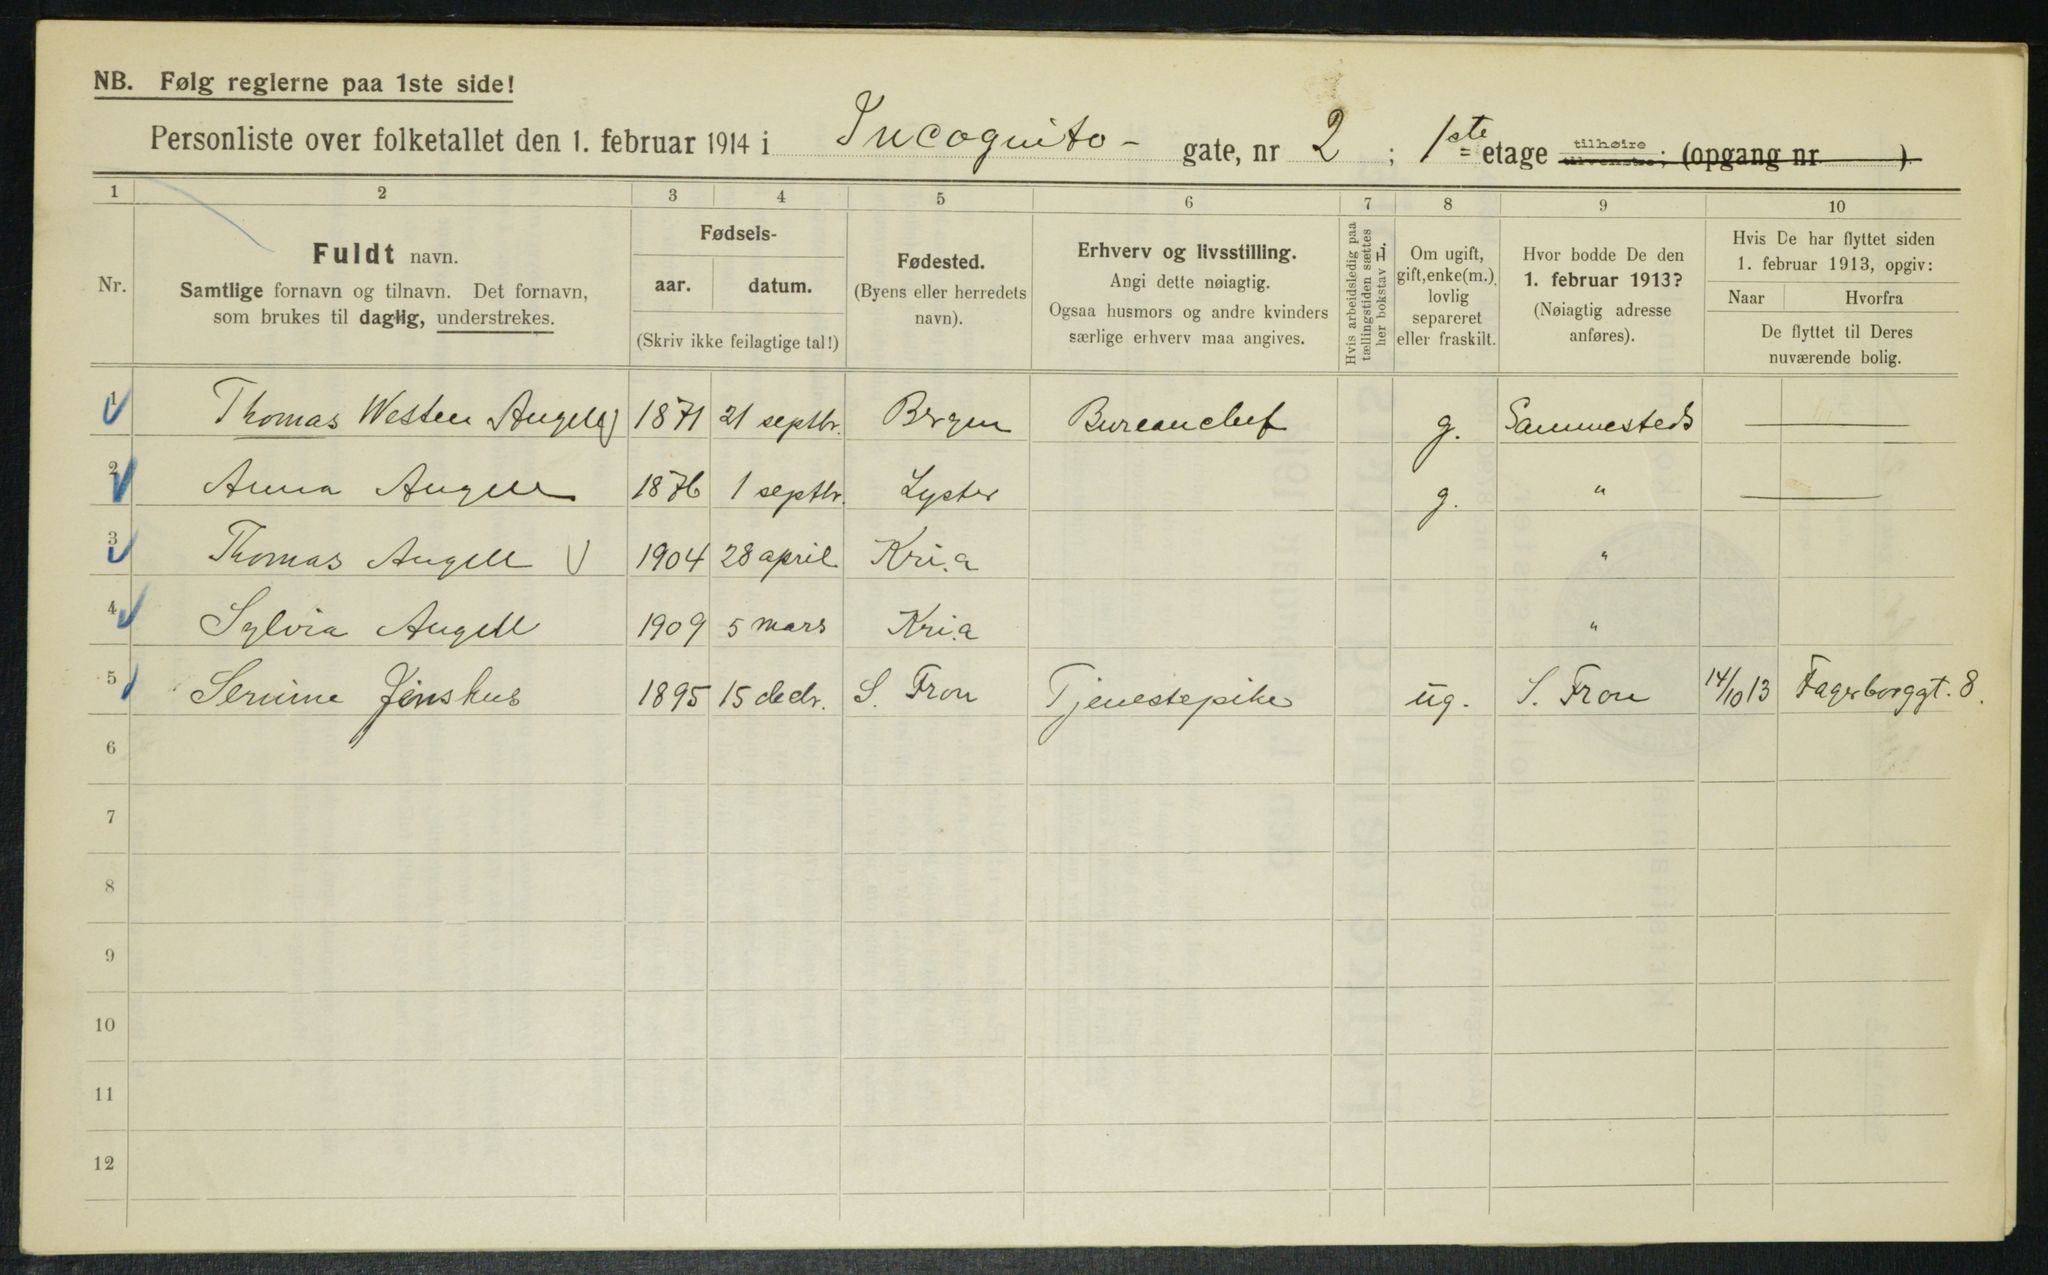 NB. Følg reglerne paa 1ste side!
Personliste over folketallet den 1. februar 1914 i Incognito- gate, nr 2 ; 1ste etage tilhøire tilvenstre; (opgang nr )
1 2 3 4 5 6 7 8 9 10
Nr.
Fuldt navn.
Samtlige fornavn og tilnavn. Det fornavn,
som brukes til daglig, understrekes.
Fødsels-
aar. datum.
(Skriv ikke feilagtige tal!)
Fødested.
(Byens eller herredets
navn).
Erhverv og livsstilling.
Angi dette nøiagtig.
Ogsaa husmors og andre kvinders
særlige erhverv maa angives.
Hvis arbeidsledig paa
tællingstiden sættes
her bokstav L.
Om ugift,
gift, enke(m.),
lovlig
separeret
eller fraskilt.
Hvor bodde De den
1. februar 1913?
(Nøiagtig adresse
anføres).
Hvis De har flyttet siden
1. februar 1913, opgiv:
Naar Hvorfra
De flyttet til Deres
nuværende bolig.
1 Thomas Westen Angell 1871 21 septbr. Bergen Bureauchef g. Sammesteds —
2 Anna Angell 1876 1 septbr. Lyster g. " —
3 Thomas Angell 1904 28 april Kri.a "
4 Sylvia Angell 1909 5 mars Kri.a "
5 Serine Jønshus 1895 15 decbr. S. Fron Tjenestepike ug. S. Fron 14/10 13 Fagerborggt. 8.
6
7
8
9
10
11
12